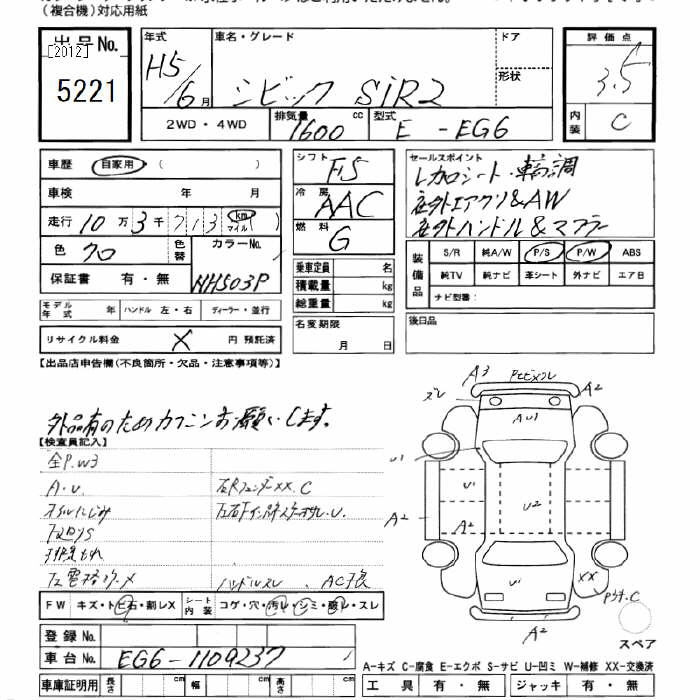 （複合機）対応用紙
出品No.
[2012]
5221
年式
H5/6月
車名・グレード
シビック SiR2
ドア
形状
2WD・4WD
排気量
1600 cc
型式
E-EG6
評価点
3.5
内装
C
車歴 自家用（ ）
車検 年 月
走行 10万3千713 km マイル
色 クロ
色替
カラーNo.
NH503P
保証書 有・無
シフト F5
冷房 AAC
燃料 G
乗車定員 名
積載量 kg
総重量 kg
セールスポイント
レカロシート・車高調
社外エアクリ&AW
社外ハンドル&マフラー
装備品
S/R 純A/W P/S P/W ABS
純TV 純ナビ 革シート 外ナビ エア日
ナビ型番：
モデル年式 年 ハンドル 左・右 ディーラー・並行
リサイクル料金 × 円 預託済
名変期限
月 日
後日品
【出品店申告欄（不良箇所・欠品・注意事項等）】
外品有のためカクニンお願いします。
【検査員記入】
全P.W3
A・U
オイルにじみ
排気もれ
ハンドルスレ、AC不良
FW キズ・トビ石・割レX
シート内装 コゲ・穴・汚レ・シミ・破レ・スレ
登録No.
車台No. EG6-1109237
車庫証明用 長さ cm 幅 cm 高さ cm
A3
ズレ
A2
AU1
U1
U1
U2
A2
A2
U1
XX
C
A2
スペア
A-キズ C-腐食 E-エクボ S-サビ U-凹ミ W-補修 XX-交換済
工具 有・無 ジャッキ 有・無